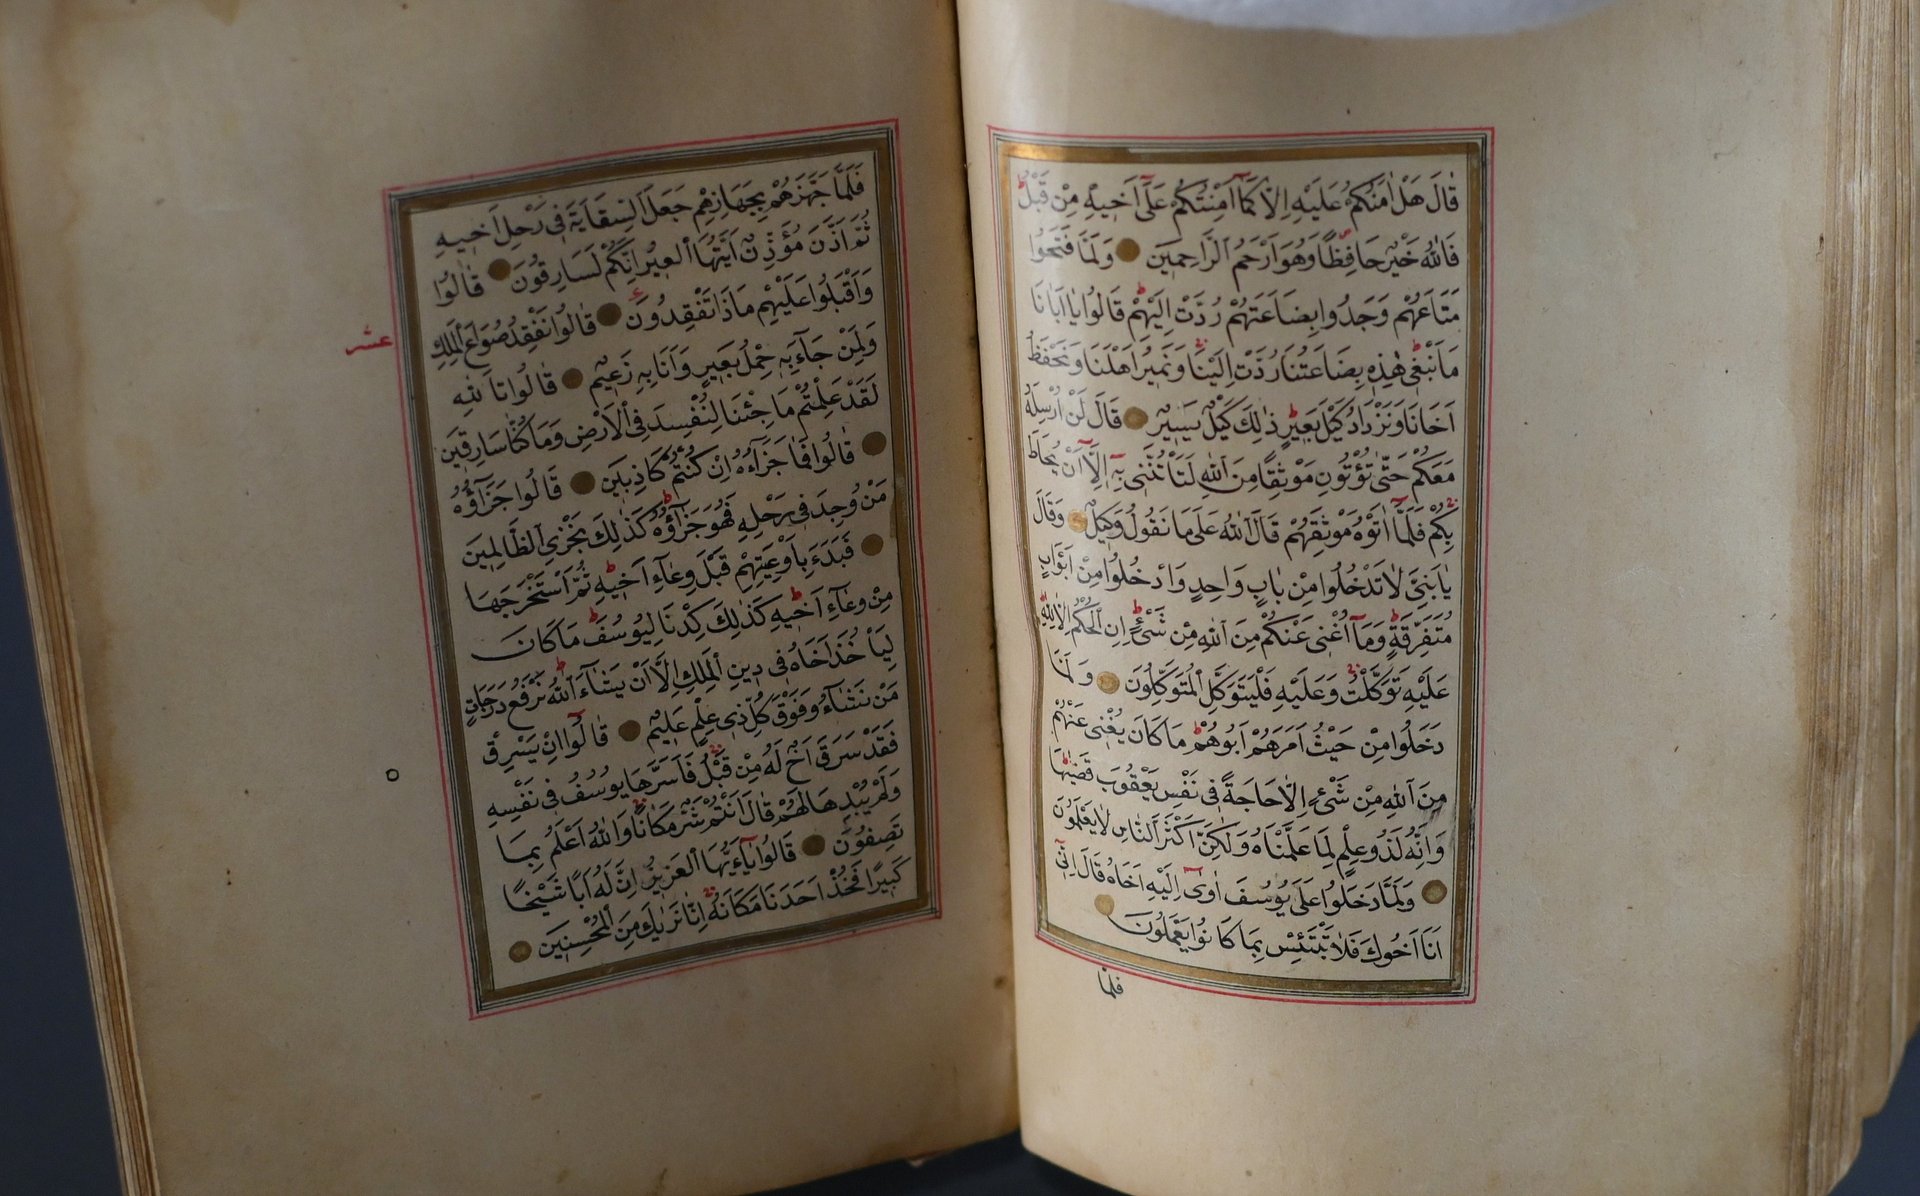 قَالَ هَلْ اٰمَنُكُمْ عَلَيْهِ اِلَّا كَمَٓا اَمِنْتُكُمْ عَلٰٓى اَخِيهِ مِنْ قَبْلُ
فَاللّٰهُ خَيْرٌ حَافِظًا وَهُوَ اَرْحَمُ الرَّاحِمِينَ وَلَمَّا فَتَحُوا
مَتَاعَهُمْ وَجَدُوا بِضَاعَتَهُمْ رُدَّتْ اِلَيْهِمْ قَالُوا يَٓا اَبَانَا
مَا نَبْغِى هٰذِهِ بِضَاعَتُنَا رُدَّتْ اِلَيْنَا وَنَمِيرُ اَهْلَنَا وَنَحْفَظُ
اَخَانَا وَنَزْدَادُ كَيْلَ بَعِيرٍ ذٰلِكَ كَيْلٌ يَسِيرٌ قَالَ لَنْ اُرْسِلَهُ
مَعَكُمْ حَتّٰى تُؤْتُونِ مَوْثِقًا مِنَ اللّٰهِ لَتَاْتُنَّنِى بِهِٓ اِلَّٓا اَنْ يُحَاطَ
بِكُمْ فَلَمَّٓا اٰتَوْهُ مَوْثِقَهُمْ قَالَ اللّٰهُ عَلٰى مَا نَقُولُ وَكِيلٌ وَقَالَ
يَا بَنِىَّ لَا تَدْخُلُوا مِنْ بَابٍ وَاحِدٍ وَادْخُلُوا مِنْ اَبْوَابٍ
مُتَفَرِّقَةٍ وَمَٓا اُغْنِى عَنْكُمْ مِنَ اللّٰهِ مِنْ شَىْءٍ اِنِ الْحُكْمُ اِلَّا لِلّٰهِ
عَلَيْهِ تَوَكَّلْتُ وَعَلَيْهِ فَلْيَتَوَكَّلِ الْمُتَوَكِّلُونَ وَلَمَّا
دَخَلُوا مِنْ حَيْثُ اَمَرَهُمْ اَبُوهُمْ مَا كَانَ يُغْنِى عَنْهُمْ
مِنَ اللّٰهِ مِنْ شَىْءٍ اِلَّا حَاجَةً فِى نَفْسِ يَعْقُوبَ قَضٰيهَا
وَاِنَّهُ لَذُو عِلْمٍ لِمَا عَلَّمْنَاهُ وَلٰكِنَّ اَكْثَرَ النَّاسِ لَا يَعْلَمُونَ
وَلَمَّا دَخَلُوا عَلٰى يُوسُفَ اٰوٰٓى اِلَيْهِ اَخَاهُ قَالَ اِنِّٓى
اَنَا اَخُوكَ فَلَا تَبْتَئِسْ بِمَا كَانُوا يَعْمَلُونَ
فلما
فَلَمَّا جَهَّزَهُمْ بِجَهَازِهِمْ جَعَلَ السِّقَايَةَ فِى رَحْلِ اَخِيهِ
ثُمَّ اَذَّنَ مُؤَذِّنٌ اَيَّتُهَا الْعِيرُ اِنَّكُمْ لَسَارِقُونَ قَالُوا
وَاَقْبَلُوا عَلَيْهِمْ مَاذَا تَفْقِدُونَ قَالُوا نَفْقِدُ صُوَاعَ الْمَلِكِ
وَلِمَنْ جَٓاءَ بِهِ حِمْلُ بَعِيرٍ وَاَنَا بِهِ زَعِيمٌ قَالُوا تَاللّٰهِ
عشر
لَقَدْ عَلِمْتُمْ مَا جِئْنَا لِنُفْسِدَ فِى الْاَرْضِ وَمَا كُنَّا سَارِقِينَ
قَالُوا فَمَا جَزَٓاؤُهُٓ اِنْ كُنْتُمْ كَاذِبِينَ قَالُوا جَزَٓاؤُهُ
مَنْ وُجِدَ فِى رَحْلِهِ فَهُوَ جَزَٓاؤُهُ كَذٰلِكَ نَجْزِى الظَّالِمِينَ
فَبَدَءَ بِاَوْعِيَتِهِمْ قَبْلَ وِعَٓاءِ اَخِيهِ ثُمَّ اسْتَخْرَجَهَا
مِنْ وِعَٓاءِ اَخِيهِ كَذٰلِكَ كِدْنَا لِيُوسُفَ مَا كَانَ
لِيَاْخُذَ اَخَاهُ فِى دِينِ الْمَلِكِ اِلَّٓا اَنْ يَشَٓاءَ اللّٰهُ نَرْفَعُ دَرَجَاتٍ
مَنْ نَشَٓاءُ وَفَوْقَ كُلِّ ذِى عِلْمٍ عَلِيمٌ قَالُٓوا اِنْ يَسْرِقْ
فَقَدْ سَرَقَ اَخٌ لَهُ مِنْ قَبْلُ فَاَسَرَّهَا يُوسُفُ فِى نَفْسِهِ
وَلَمْ يُبْدِهَا لَهُمْ قَالَ اَنْتُمْ شَرٌّ مَكَانًا وَاللّٰهُ اَعْلَمُ بِمَا
تَصِفُونَ قَالُوا يَٓا اَيُّهَا الْعَزِيزُ اِنَّ لَهُٓ اَبًا شَيْخًا
كَبِيرًا فَخُذْ اَحَدَنَا مَكَانَهُ اِنَّا نَرٰيكَ مِنَ الْمُحْسِنِينَ